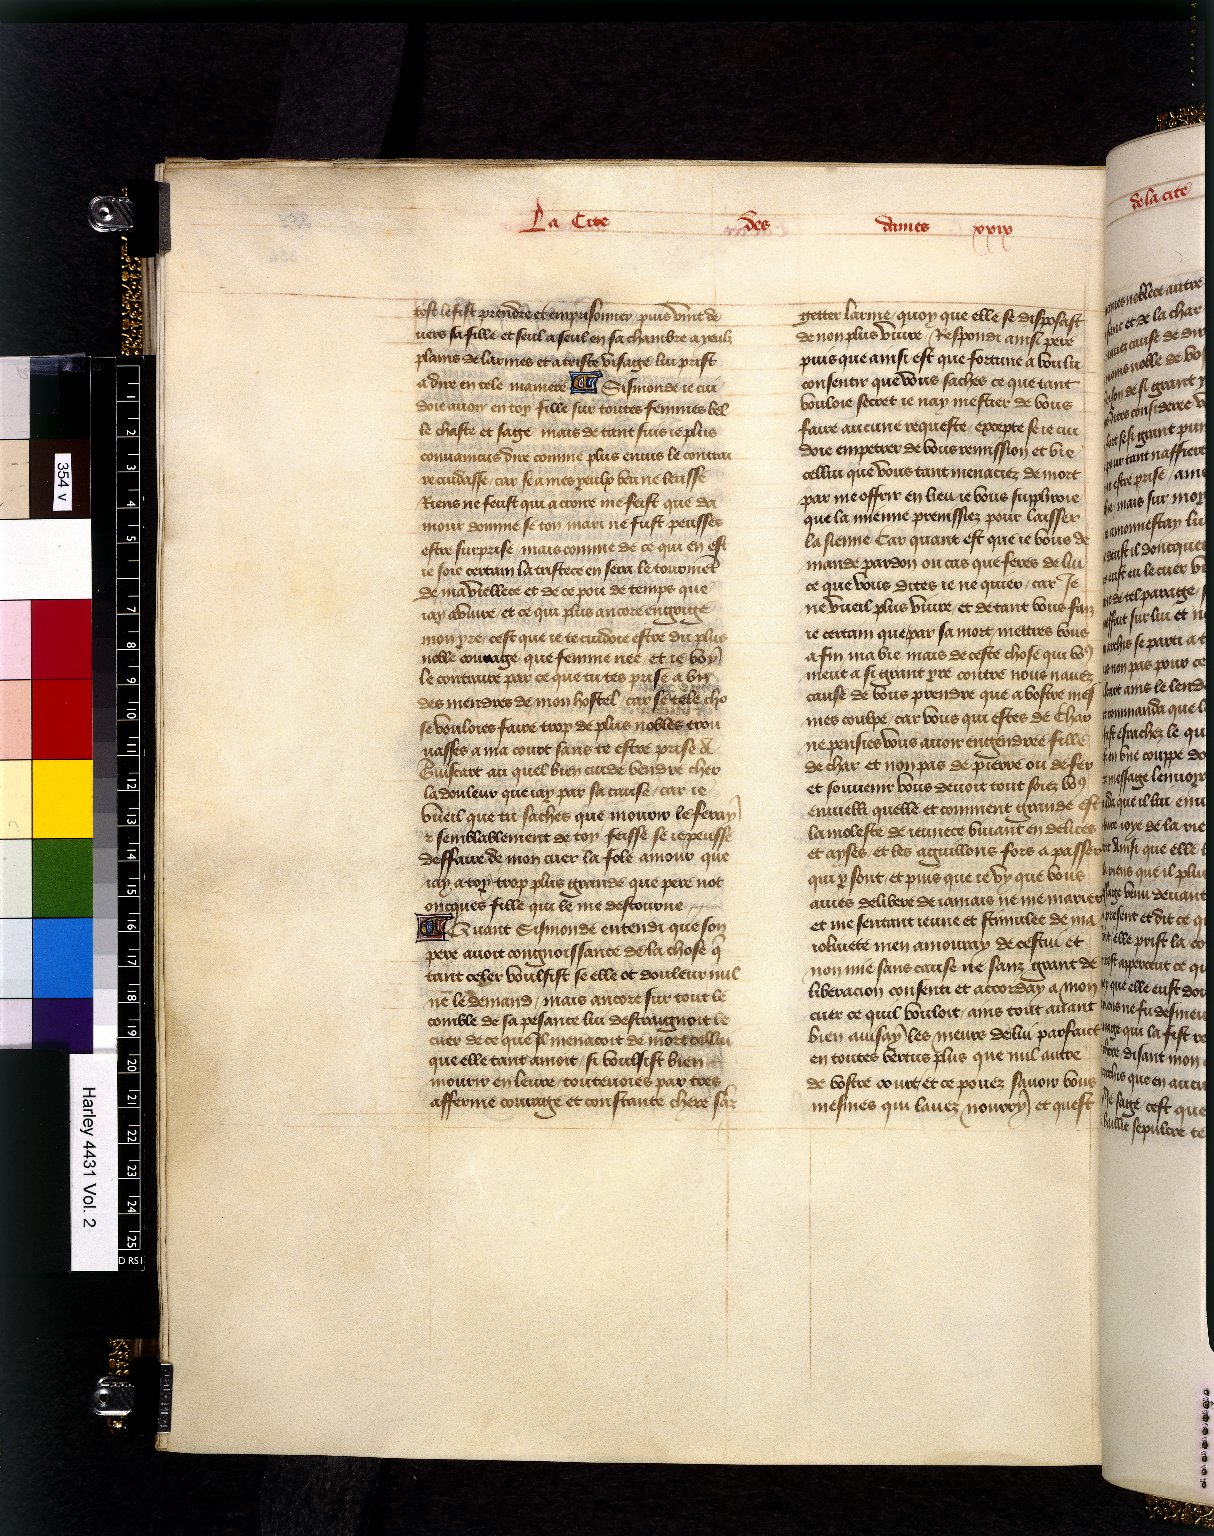 La Cite des dames xxix
tost le fist prendre et emprisonner / puis vint de
uers sa fille et seul a seul en sa chambre a yeulz
plains de larmes et a triste visage lui prist
a dire en tele maniere Sismonde ie cui
doie auoir en toy fille sur toutes femmes bel
le chaste et sage mais de tant suis ie plus
conuaincus dire comme plus enuis le contrai
re cuidasse / car se a mes yeulx veu ne leusse
Riens ne feust qui acroire me feist que da
mour domme se ton mari ne fust peusses
estre surprise / mais comme de ce qui en est
ie soie certain la tristece en sera le tourment
de ma viellece et de ce pou de temps que
iay a viure / et ce qui plus ancore engrige
mon yre / cest que ie te cuidoie estre du plus
noble courage que femme nee et ie voy
le contraire par ce que tu tes prise a vn
des mendres de mon hostel / car se tele cho
se vouloies faire trop de plus nobles trou
uasses a ma court sans te estre prise a
Guiscart au quel bien cuide vendre cher
la douleur que iay par sa cause / car ie
vueil que tu saches que mourir le feray
e semblablement de toy feisse se ie peusse
deffaire de mon cuer la fole amour que
iay a toy trop plus grande que pere not
oncques fille qui le me destourne
Quant Sismonde entendi que son
pere auoit congnoissance de la chose q̄
tant celer voulsist se elle ot douleur nul
ne le demand / mais ancore sur tout le
comble de sa pesance lui destraignoit le
cuer de ce que il menacoit de mort cellui
que elle tant amoit / si voulsist bien
mourir en leure / toutevoies par tres
afferme courage et constante chere sāz
getter larme / quoy que elle se disposast
de non plus viure / Respondi ainsi pere
puis que ainsi est que fortune a voulu
consentir que vous saches ce que tant
vouloie secret ie nay mestier de vous
faire aucune requeste / excepte se ie cui
doie empetrer de vous remission et vie
cellui que vous tant menaciez de mort
par me offrir en lieu ie vous supliroie
que la mienne prenissiez pour laisser
la sienne Car quant est que ie vous de
mande pardon ou cas que feres de lui
ce que vous dites ie ne quier / car Je
ne vueil plus viure / et de tant vous fais
ie certain que par sa mort mettres vous
a fin ma vie mais de ceste chose qui voꝰ
meut a si grant yre contre nous nauez
cause de vous prendre que a vostre mes
mes coulpe / car vous qui estes de char
ne pensies vous auoir engendree fille
de char et non pas de pierre ou de fer
et souuenir vous deuoit tout soiez voꝰ
enuielli quelle et comment grande est
la moleste de ieunece viuant en delices
et ayses et les aguillons fors a passer
qui y sont / et puis que ie vy que vous
auies delibere de iamais ne me marier
et me sentant ieune et stimulee de ma
ioliuete men amouray de cestui et
non mie sans cause ne sanz grant de
liberacion consenti et accorday a mon
cuer ce quil vouloit / ains tout auant
bien auisay les meurs de lui parfaict
en toutes vertus plus que nul autre
de vostre court et ce pouez sauoir vous
mesmes qui lauez nourry et quest
de la cite
354 v
Harley 4431 Vol. 2
1
2
3
4
5
7
8
9
10
11
12
13
14
15
16
17
18
19
20
21
22
23
24
25